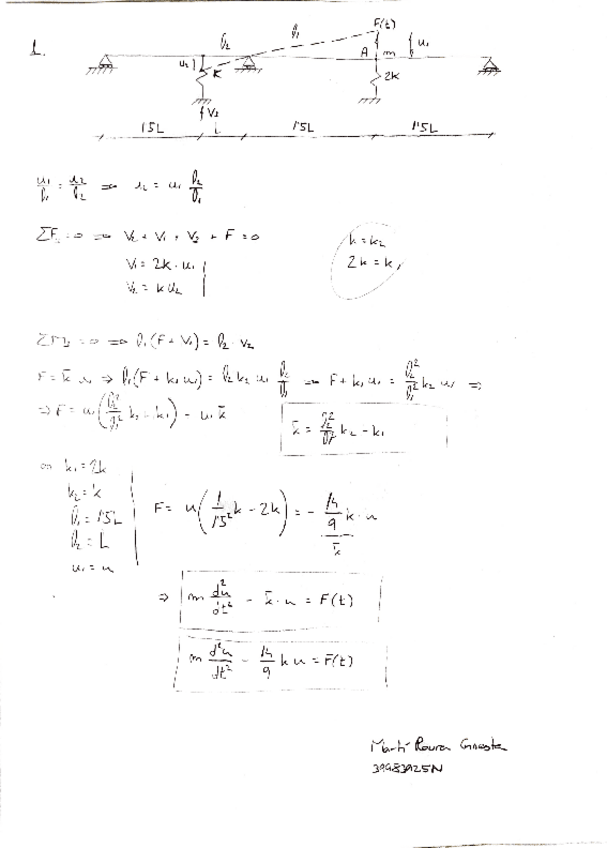 1.
F(t)
l₂ l₁
u₂ K A m u₁
2k
V₂
1'5L L 1'5L 1'5L
u₁/l₁ = u₂/l₂ ⇒ u₂ = u₁ l₂/l₁
ΣF = 0 ⇒ V₂ + V₁ + V₃ + F = 0
V₁ = 2k · u₁
V₂ = k u₂
k = k₂
2k = k₁
= 0 ⇒ l₁(F + V₁) = l₂ · V₂
F = k̄ u₁ ⇒ l₁(F + k₁u₁) = l₂ k₂ u₁ l₂/l₁ ⇒ F + k₁u₁ = l₂²/l₁² k₂ u₁ ⇒
⇒ F = u₁(l₂²/l₁² k₂ - k₁) - u₁ k̄
k̄ = l₂²/l₁² k₂ - k₁
k₁ = 2k
k₂ = k
l₁ = 1'5L
l₂ = L
u₁ = u
F = u(1/1'5² k - 2k) = - 14/9 k · u
k̄
⇒ m d²u/dt² - k̄ · u = F(t)
m d²u/dt² - 14/9 k u = F(t)
Martí Roura
39983925N